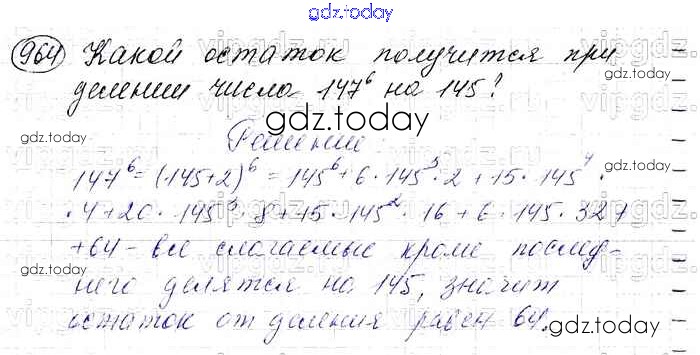 gdz.today
964 Какой остаток получится при
делении числа 147⁶ на 145?
gdz.today
Решение:
147⁶ = (145+2)⁶ = 145⁶ + 6 · 145⁵ · 2 + 15 · 145⁴ ·
· 4 + 20 · 145³ · 8 + 15 · 145² · 16 + 6 · 145 · 32 +
+64 - все слагаемые кроме послед-
gdz.today
него делятся на 145, значит
остаток от деления равен 64.
gdz.today